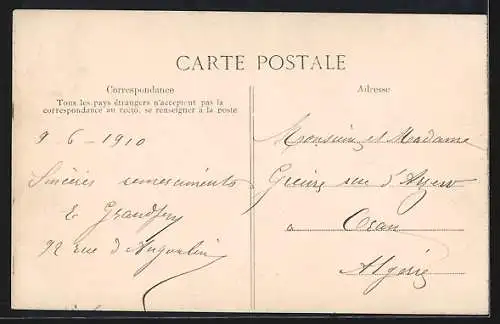 CARTE POSTALE
Correspondance
Tous les pays étrangers n'acceptent pas la
correspondance au recto, se renseigner à la poste
Adresse
9 - 6 - 1910
Sincères remerciements
92 rue d'
Monsieur et Madame
rue d'
à Oran
Algérie